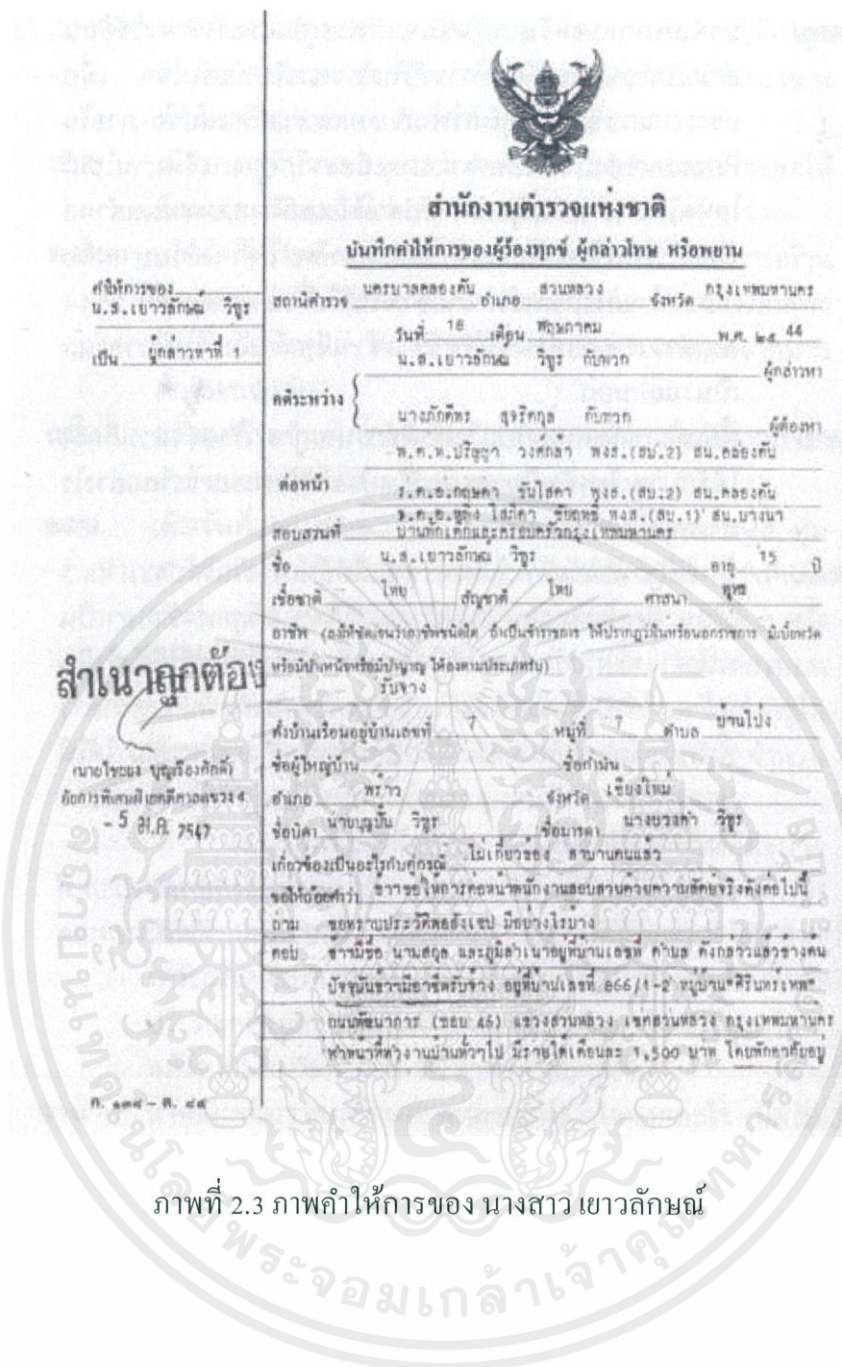 สำนักงานตำรวจแห่งชาติ
บันทึกคำให้การของผู้ร้องทุกข์ ผู้กล่าวโทษ หรือพยาน
คำให้การของ
น.ส.เยาวลักษณ์ วิฑูร
เป็น ผู้กล่าวหาที่ 1
สถานีตำรวจ นครบาลคลองตัน อำเภอ สวนหลวง จังหวัด กรุงเทพมหานคร
วันที่ 18 เดือน พฤษภาคม พ.ศ. ๒๕ 44
น.ส.เยาวลักษณ์ วิฑูร กับพวก ผู้กล่าวหา
คดีระหว่าง
นางภักดิ์พร สุจริตกุล กับพวก ผู้ต้องหา
พ.ต.ท.ปรัญญา วงศ์กลา พงส.(สบ.2) สน.คลองตัน
ต่อหน้า ร.ต.อ.กฤษดา พงส.(สบ.2) สน.คลองตัน
พงส.(สบ.1) สน.บางนา
สอบสวนที่ บ้านพักเด็กและครอบครัวกรุงเทพมหานคร
ชื่อ น.ส.เยาวลักษณ์ วิฑูร อายุ 15 ปี
เชื้อชาติ ไทย สัญชาติ ไทย ศาสนา พุทธ
อาชีพ (ลงให้ชัดเจนว่าอาชีพชนิดใด ถ้าเป็นข้าราชการ ให้ปรากฏว่าในหรือนอกราชการ มีเบี้ยหวัด
หรือมีบำเหน็จหรือมีบำนาญ ให้ลงตามประเภทรับ)
รับจ้าง
ตั้งบ้านเรือนอยู่บ้านเลขที่ 7 หมู่ที่ 7 ตำบล บ้านโป่ง
ชื่อผู้ใหญ่บ้าน ชื่อกำนัน
อำเภอ พร้าว จังหวัด เชียงใหม่
ชื่อบิดา นายบุญปั๋น วิฑูร ชื่อมารดา นางบัวคำ วิฑูร
เกี่ยวข้องเป็นอะไรกับคู่กรณี ไม่เกี่ยวข้อง สาบานตนแล้ว
ขอให้ถ้อยคำว่า ข้าฯขอให้การต่อหน้าพนักงานสอบสวนด้วยความสัตย์จริงดังต่อไปนี้
ถาม ขอทราบประวัติพอสังเขป มีอย่างไรบ้าง
ตอบ ข้าฯมีชื่อ นามสกุล และภูมิลำเนาอยู่ที่บ้านเลขที่ ตำบล ดังกล่าวแล้วข้างต้น
ปัจจุบันข้าฯมีอาชีพรับจ้าง อยู่ที่บ้านเลขที่ 866/1-2 หมู่บ้าน"ศิรินทร์เทพ"
ถนนพัฒนาการ (ซอย 46) แขวงสวนหลวง เขตสวนหลวง กรุงเทพมหานคร
ทำหน้าที่ทำงานบ้านทั่วๆไป มีรายได้เดือนละ 1,500 บาท โดยพักอาศัยอยู่
สำเนาถูกต้อง
(นายไชยยง บุญเรืองศักดิ์)
อัยการพิเศษฝ่ายคดีศาลแขวง 4
- 5 2547
ต. ๑๓๔ - ต. ๔๕
ภาพที่ 2.3 ภาพคำให้การของ นางสาว เยาวลักษณ์
พระจอมเกล้าเจ้าคุณทหาร